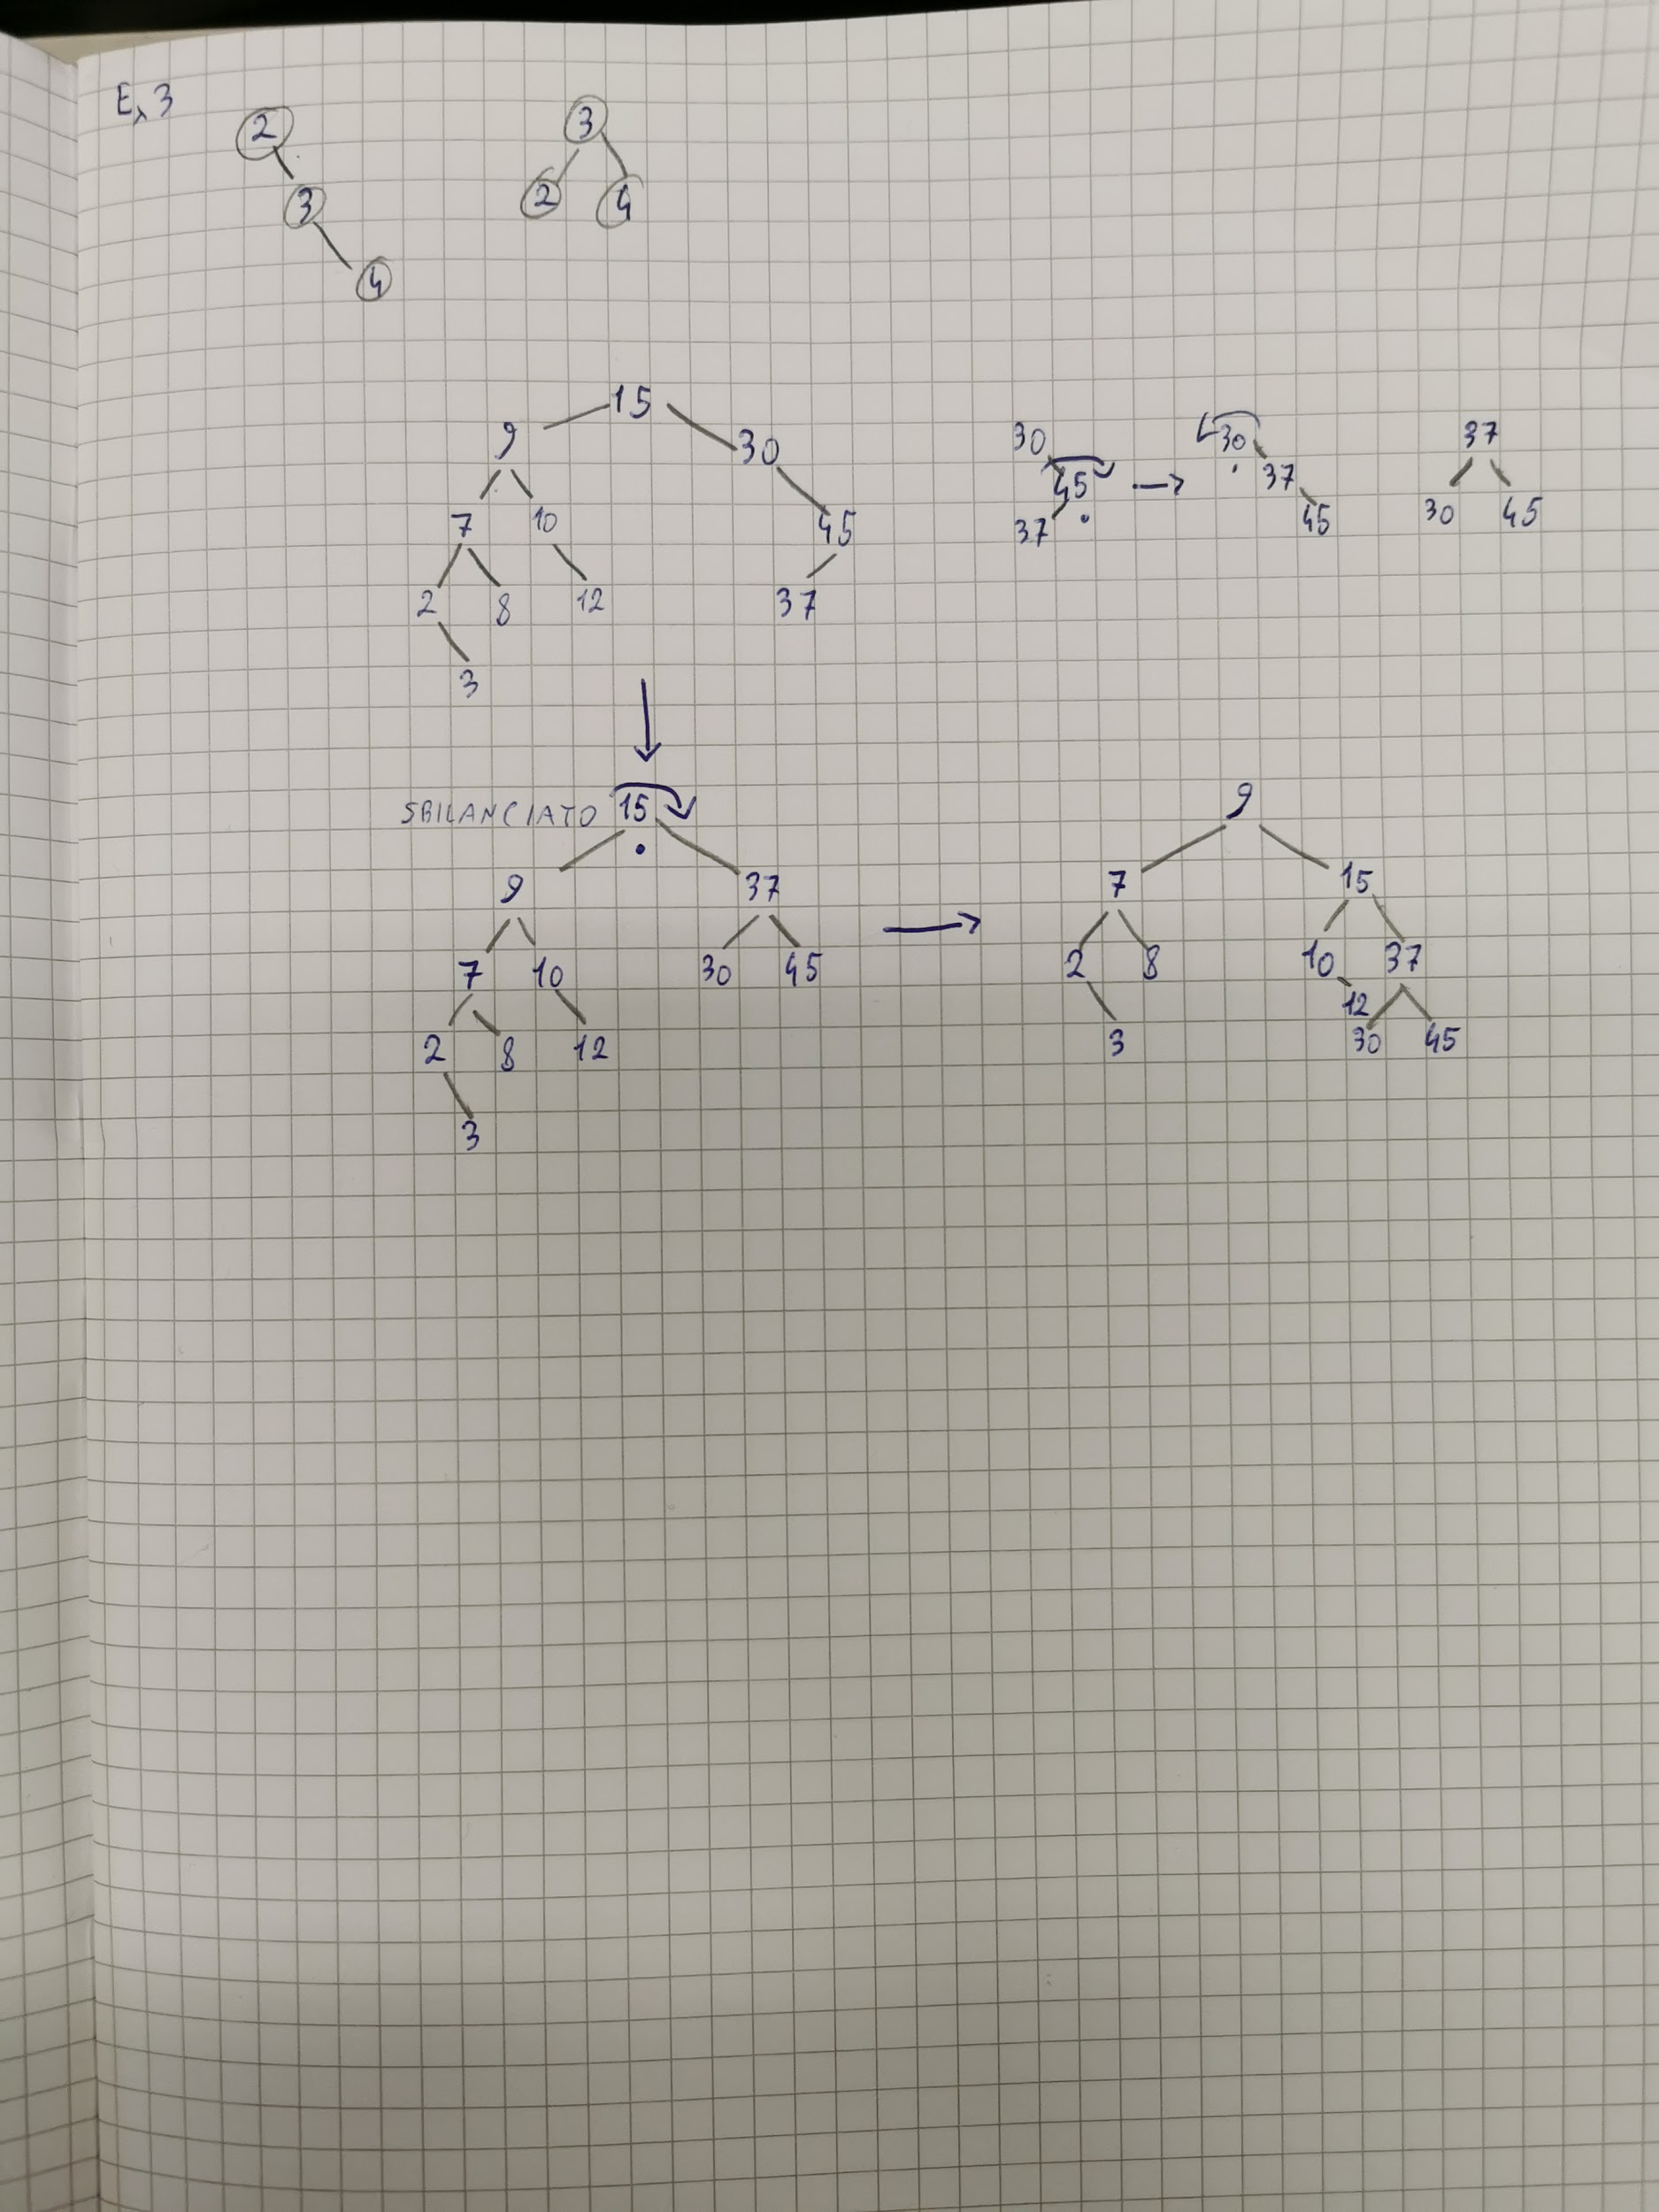 Ex 3
2 3
3 2 4
4
15
9 30
7 10 45
2 8 12 37
3
30
45
37
30
37
45
37
30 45
SBILANCIATO 15
9 37
7 10 30 45
2 8 12
3
9
7 15
2 8 10 37
12
3 30 45